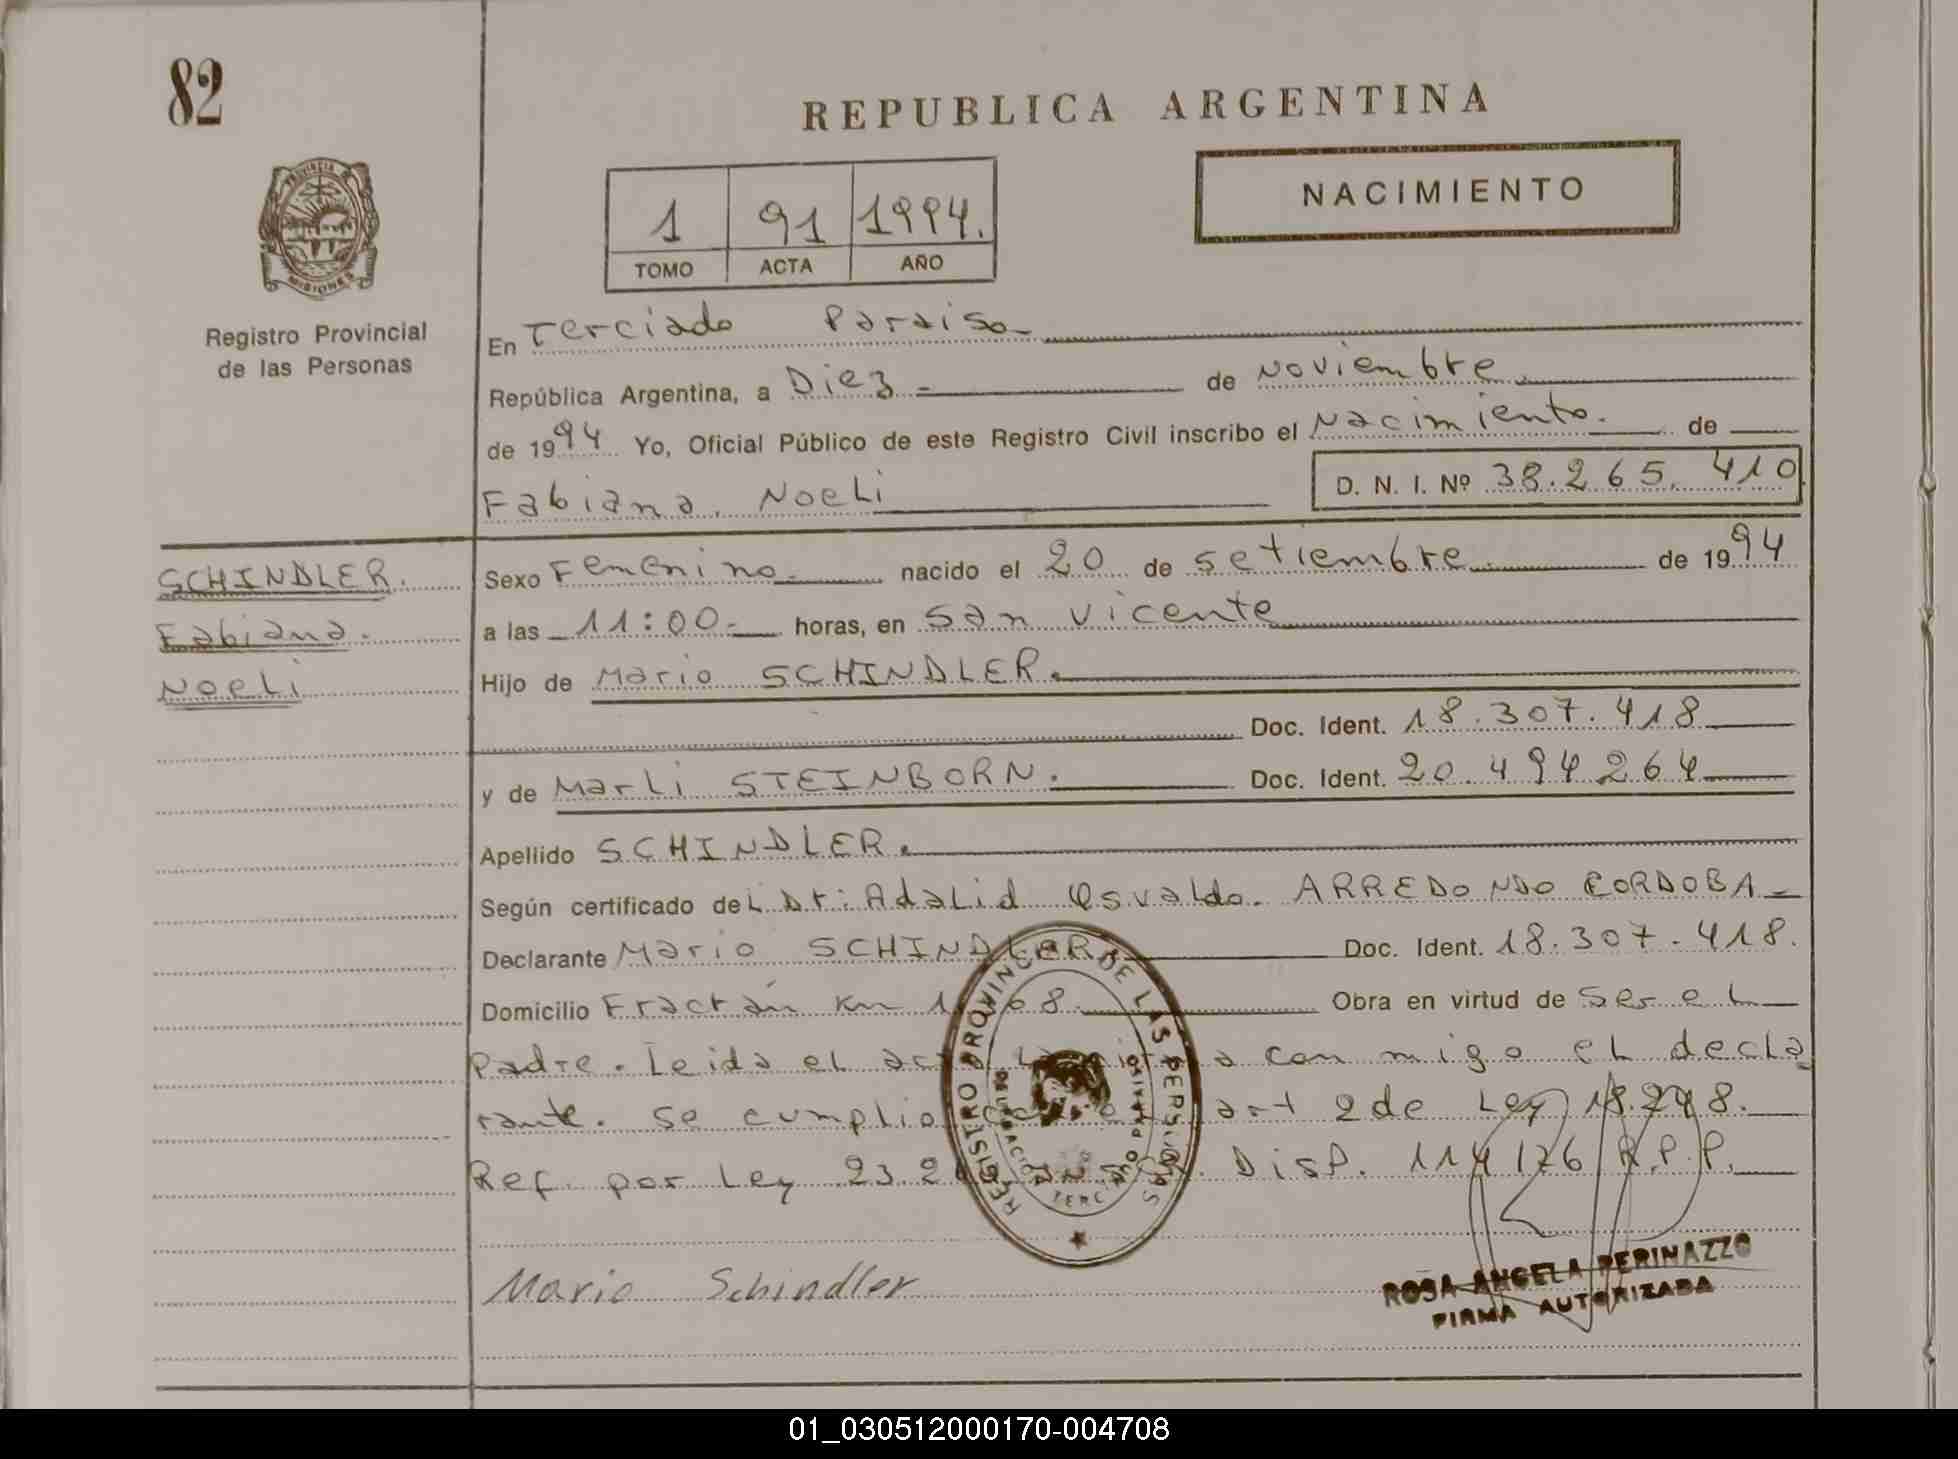 82
REPUBLICA ARGENTINA
NACIMIENTO
1 91 1994.
TOMO ACTA AÑO
PROVINCIA DE MISIONES
Registro Provincial
de las Personas
En Terciado Paraiso
República Argentina, a Diez de Noviembre
de 1994 Yo, Oficial Público de este Registro Civil inscribo el Nacimiento. de
Fabiana Noeli
D. N. I. Nº 38.265.410
SCHINDLER.
Fabiana.
Noeli
Sexo Femenino nacido el 20 de setiembre de 1994
a las 11:00 horas, en San Vicente
Hijo de Mario SCHINDLER.
Doc. Ident. 18.307.418
y de Marli STEINBORN. Doc. Ident. 20.494.264
Apellido SCHINDLER.
Según certificado del Dr: Adalid Osvaldo ARREDONDO CORDOBA
Declarante Mario SCHINDLER Doc. Ident. 18.307.418.
Domicilio Fractán Km Obra en virtud de Ser el
Padre. Leida el con migo el decla
rante. se cumplio art 2 de Ley 18.248.
Ref. por Ley Disp. 114/76 R.P.P.
REGISTRO PROVINCIAL DE LAS PERSONAS
Mario Schindler
ROSA ANGELA PERINAZZO
FIRMA AUTORIZADA
01_030512000170-004708